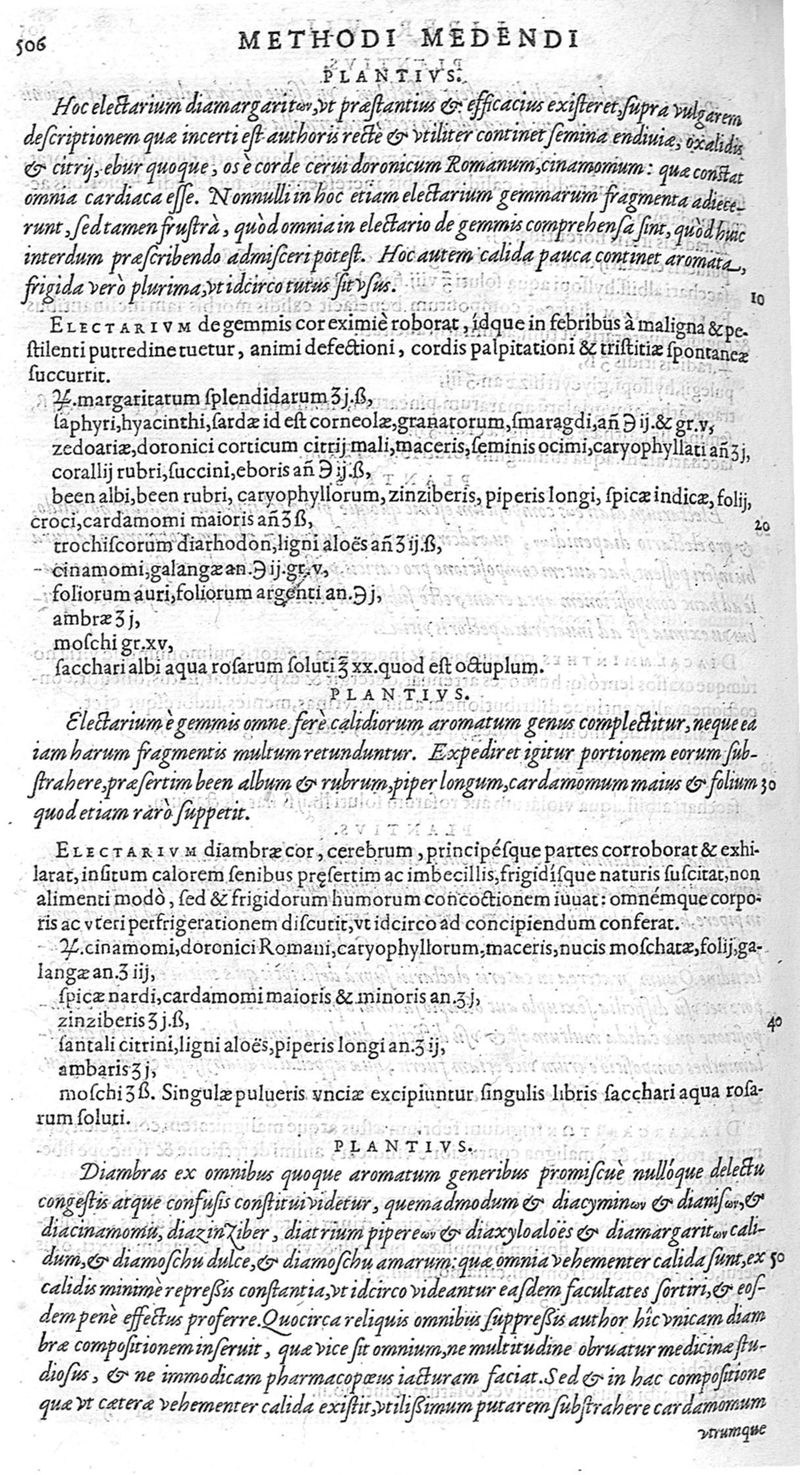 506
METHODI MEDENDI
PLANTIVS.
Hoc electarium diamargaritων, vt præſtantius & efficacius exiſteret, ſupra vulgarem
deſcriptionem quæ incerti eſt authoris rectè & vtiliter continet ſemina endiuiæ, oxalidis
& citrij, ebur quoque, os è corde cerui doronicum Romanum, cinamomum: quæ conſtat
omnia cardiaca eſſe. Nonnulli in hoc etiam electarium gemmarum fragmenta adiece-
runt, ſed tamen fruſtrà, quòd omnia in electario de gemmis comprehenſa ſint, quòd huic
interdum præſcribendo admiſceri poteſt. Hoc autem calida pauca continet aromata,
frigida verò plurima, vt idcirco tutus ſit vſus.
10
ELECTARIVM de gemmis cor eximiè roborat, idque in febribus à maligna & pe-
ſtilenti putredine tuetur, animi defectioni, cordis palpitationi & triſtitiæ ſpontaneæ
ſuccurrit.
♃.margaritarum ſplendidarum ʒj.ß,
ſaphyri, hyacinthi, ſardæ id eſt corneolæ, granatorum, ſmaragdi, an̄ ℈ ij. & gr.v,
zedoariæ, doronici corticum citrij mali, maceris, ſeminis ocimi, caryophyllati an̄ ʒj,
corallij rubri, ſuccini, eboris an̄ ℈ ij.ß,
been albi, been rubri, caryophyllorum, zinziberis, piperis longi, ſpicæ indicæ, folij,
croci, cardamomi maioris an̄ ʒß,
20
trochiſcorum diarhodon, ligni aloës an̄ ʒij.ß,
cinamomi, galangæ an. ℈ ij.gr.v,
foliorum auri, foliorum argenti an. ℈ j,
ambræ ʒj,
moſchi gr.xv,
ſacchari albi aqua roſarum ſoluti ℥ xx. quod eſt octuplum.
PLANTIVS.
Electarium è gemmis omne ferè calidiorum aromatum genus complectitur, neque ea
iam harum fragmentis multum retunduntur. Expediret igitur portionem eorum ſub-
ſtrahere, præſertim been album & rubrum, piper longum, cardamomum maius & folium 30
quod etiam rarò ſuppetit.
ELECTARIVM diambræ cor, cerebrum, principéſque partes corroborat & exhi-
larat, inſitum calorem ſenibus pręſertim ac imbecillis, frigidíſque naturis ſuſcitat, non
alimenti modò, ſed & frigidorum humorum concoctionem iuuat: omnémque corpo-
ris ac vteri perfrigerationem diſcutit, vt idcirco ad concipiendum conferat.
♃.cinamomi, doronici Romani, caryophyllorum, maceris, nucis moſchatæ, folij, ga-
langæ an. ʒ iij,
ſpicæ nardi, cardamomi maioris & minoris an. ʒj,
zinziberis ʒj.ß,
40
ſantali citrini, ligni aloës, piperis longi an. ʒ ij,
ambaris ʒj,
moſchi ʒß. Singulæ pulueris vnciæ excipiuntur ſingulis libris ſacchari aqua roſa-
rum ſoluti.
PLANTIVS.
Diambras ex omnibus quoque aromatum generibus promiſcuè nullóque delectu
congeſtis atque confuſis conſtitui videtur, quemadmodum & diacyminων & dianiſων, &
diacinamomū, diazinziber, diatrium pipereων & diaxyloaloës & diamargaritων cali-
dum, & diamoſchu dulce, & diamoſchu amarum: quæ omnia vehementer calida ſunt, ex 50
calidis minimè repreſſis conſtantia, vt idcirco videantur eaſdem facultates ſortiri, & eoſ-
dem penè effectus proferre. Quocirca reliquis omnibus ſuppreſſis author hîc vnicam diam
bræ compoſitionem inſeruit, quæ vice ſit omnium, ne multitudine obruatur medicinæ ſtu-
dioſus, & ne immodicam pharmacopœus iacturam faciat. Sed & in hac compoſitione
quæ vt cæteræ vehementer calida exiſtit, vtiliſſimum putarem ſubſtrahere cardamomum
vtrumque